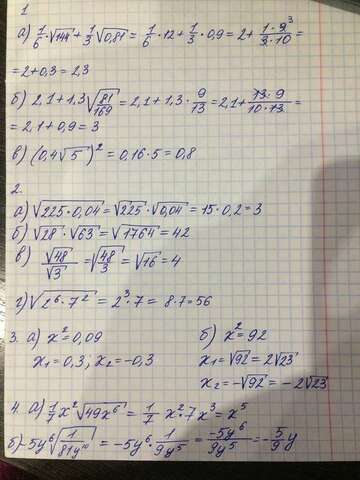 1
а) 1/6 · √144 + 1/3 √0,81 = 1/6 · 12 + 1/3 · 0,9 = 2 + (1 · 9 ³)/(3 · 10) =
= 2 + 0,3 = 2,3
б) 2,1 + 1,3 √(81/169) = 2,1 + 1,3 · 9/13 = 2,1 + (13 · 9)/(10 · 13) =
= 2,1 + 0,9 = 3
в) (0,4√5)² = 0,16 · 5 = 0,8
2.
а) √(225 · 0,04) = √225 · √0,04 = 15 · 0,2 = 3
б) √28 · √63 = √1764 = 42
в) √48/√3 = √(48/3) = √16 = 4
г) √(2⁶ · 7²) = 2³ · 7 = 8 · 7 = 56
3. а) x² = 0,09 б) x² = 92
x₁ = 0,3; x₂ = -0,3 x₁ = √92 = 2√23
x₂ = -√92 = -2√23
4. а) 1/7 x² √(49x⁶) = 1/7 · x² · 7x³ = x⁵
б) -5y⁶ √(1/(81y¹⁰)) = -5y⁶ · 1/(9y⁵) = -5y⁶/(9y⁵) = -5/9 y